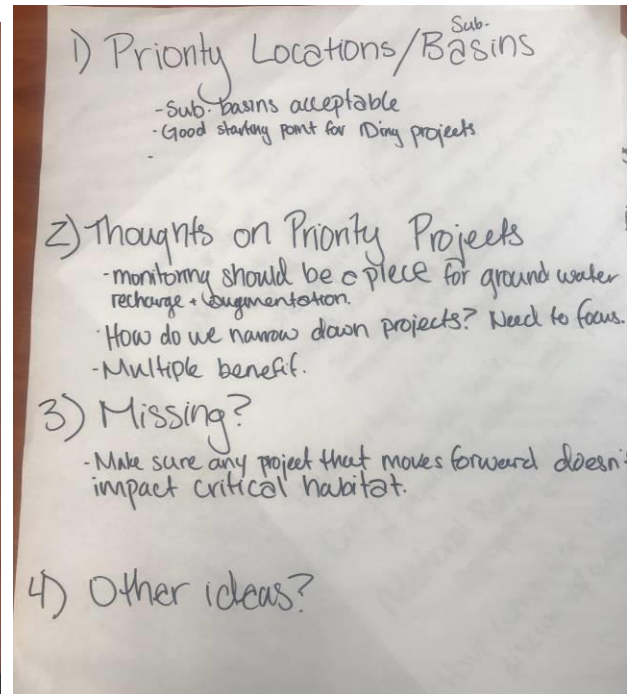 1) Priority Locations/Basins
Sub.
- Sub.basins acceptable
- Good starting point for IDing projects
-
2) Thoughts on Priority Projects
- monitoring should be a piece for ground water
recharge + augmentation.
· How do we narrow down projects? Need to focus.
- Multiple benefit.
3) Missing?
- Make sure any project that moves forward doesn't
impact critical habitat.
4) Other ideas?